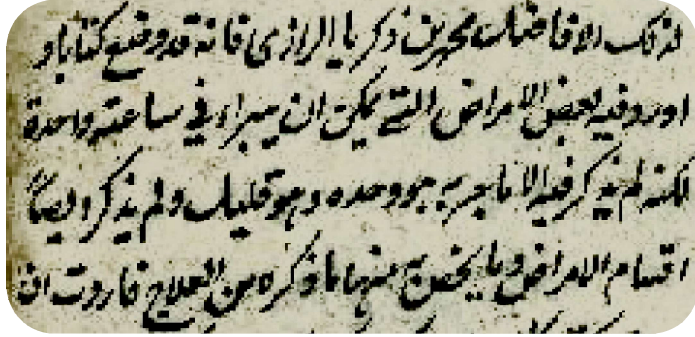 لذلك الا فاضل محمد بن زكريا الرازي فانه قد وضع كتابا و
اورد فيه بعض الامراض التي يمكن ان يبراء في ساعة واحدة
لكنه لم يذكر فيه الا ما جربه هو وحده وهو قليل ولم يذكر ايضاً
اقسام الامراض وما يختص به منها ما ذكره من العلاج فاردت ان